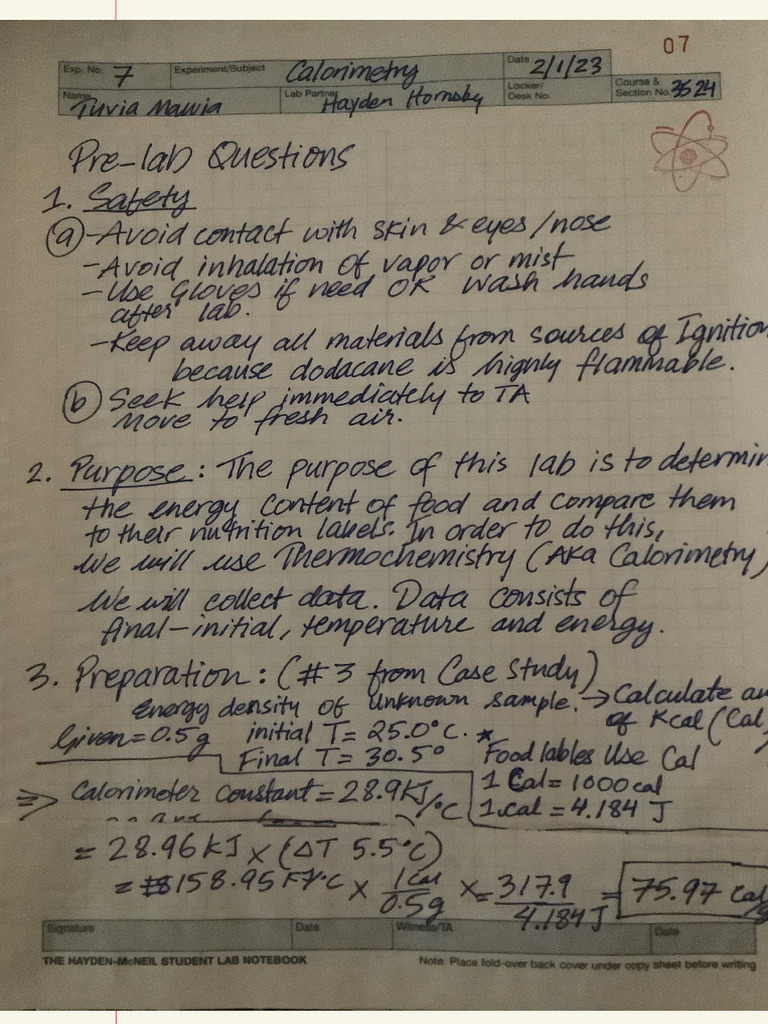 07
Exp. No. 7 Experiment/Subject Calorimetry Date 2/1/23
Name Tuvia Mawia Lab Partner Hayden Hornsby Locker/ Desk No. Course & Section No. 3524
Pre-lab Questions
1. Safety
(a) - Avoid contact with skin & eyes/nose
- Avoid inhalation of vapor or mist
- Use Gloves if need OR wash hands
after lab.
- Keep away all materials from sources of Ignition
because dodacane is highly flammable.
(b) Seek help immediately to TA
Move to fresh air.
2. Purpose: The purpose of this lab is to determin
the energy content of food and compare them
to their nutrition labels. In order to do this,
We will use Thermochemistry (AKA Calorimetry)
We will collect data. Data consists of
final-initial, temperature and energy.
3. Preparation: (#3 from Case Study)
Energy density of Unknown sample. → Calculate
of Kcal (Cal
Given = 0.5g initial T = 25.0°C. *
Final T = 30.5° Food lables Use Cal
1 Cal = 1000 cal
⇒ Calorimeter constant = 28.9 KJ/°C 1 cal = 4.184 J
= 28.96 KJ × (ΔT 5.5°C)
= 158.95 KJ°C × 1 Cal/0.5g × = 317.9/4.184 J = 75.97 Cal/g
Signature Date Witness/TA Date
THE HAYDEN-McNEIL STUDENT LAB NOTEBOOK Note: Place fold-over back cover under copy sheet before writing